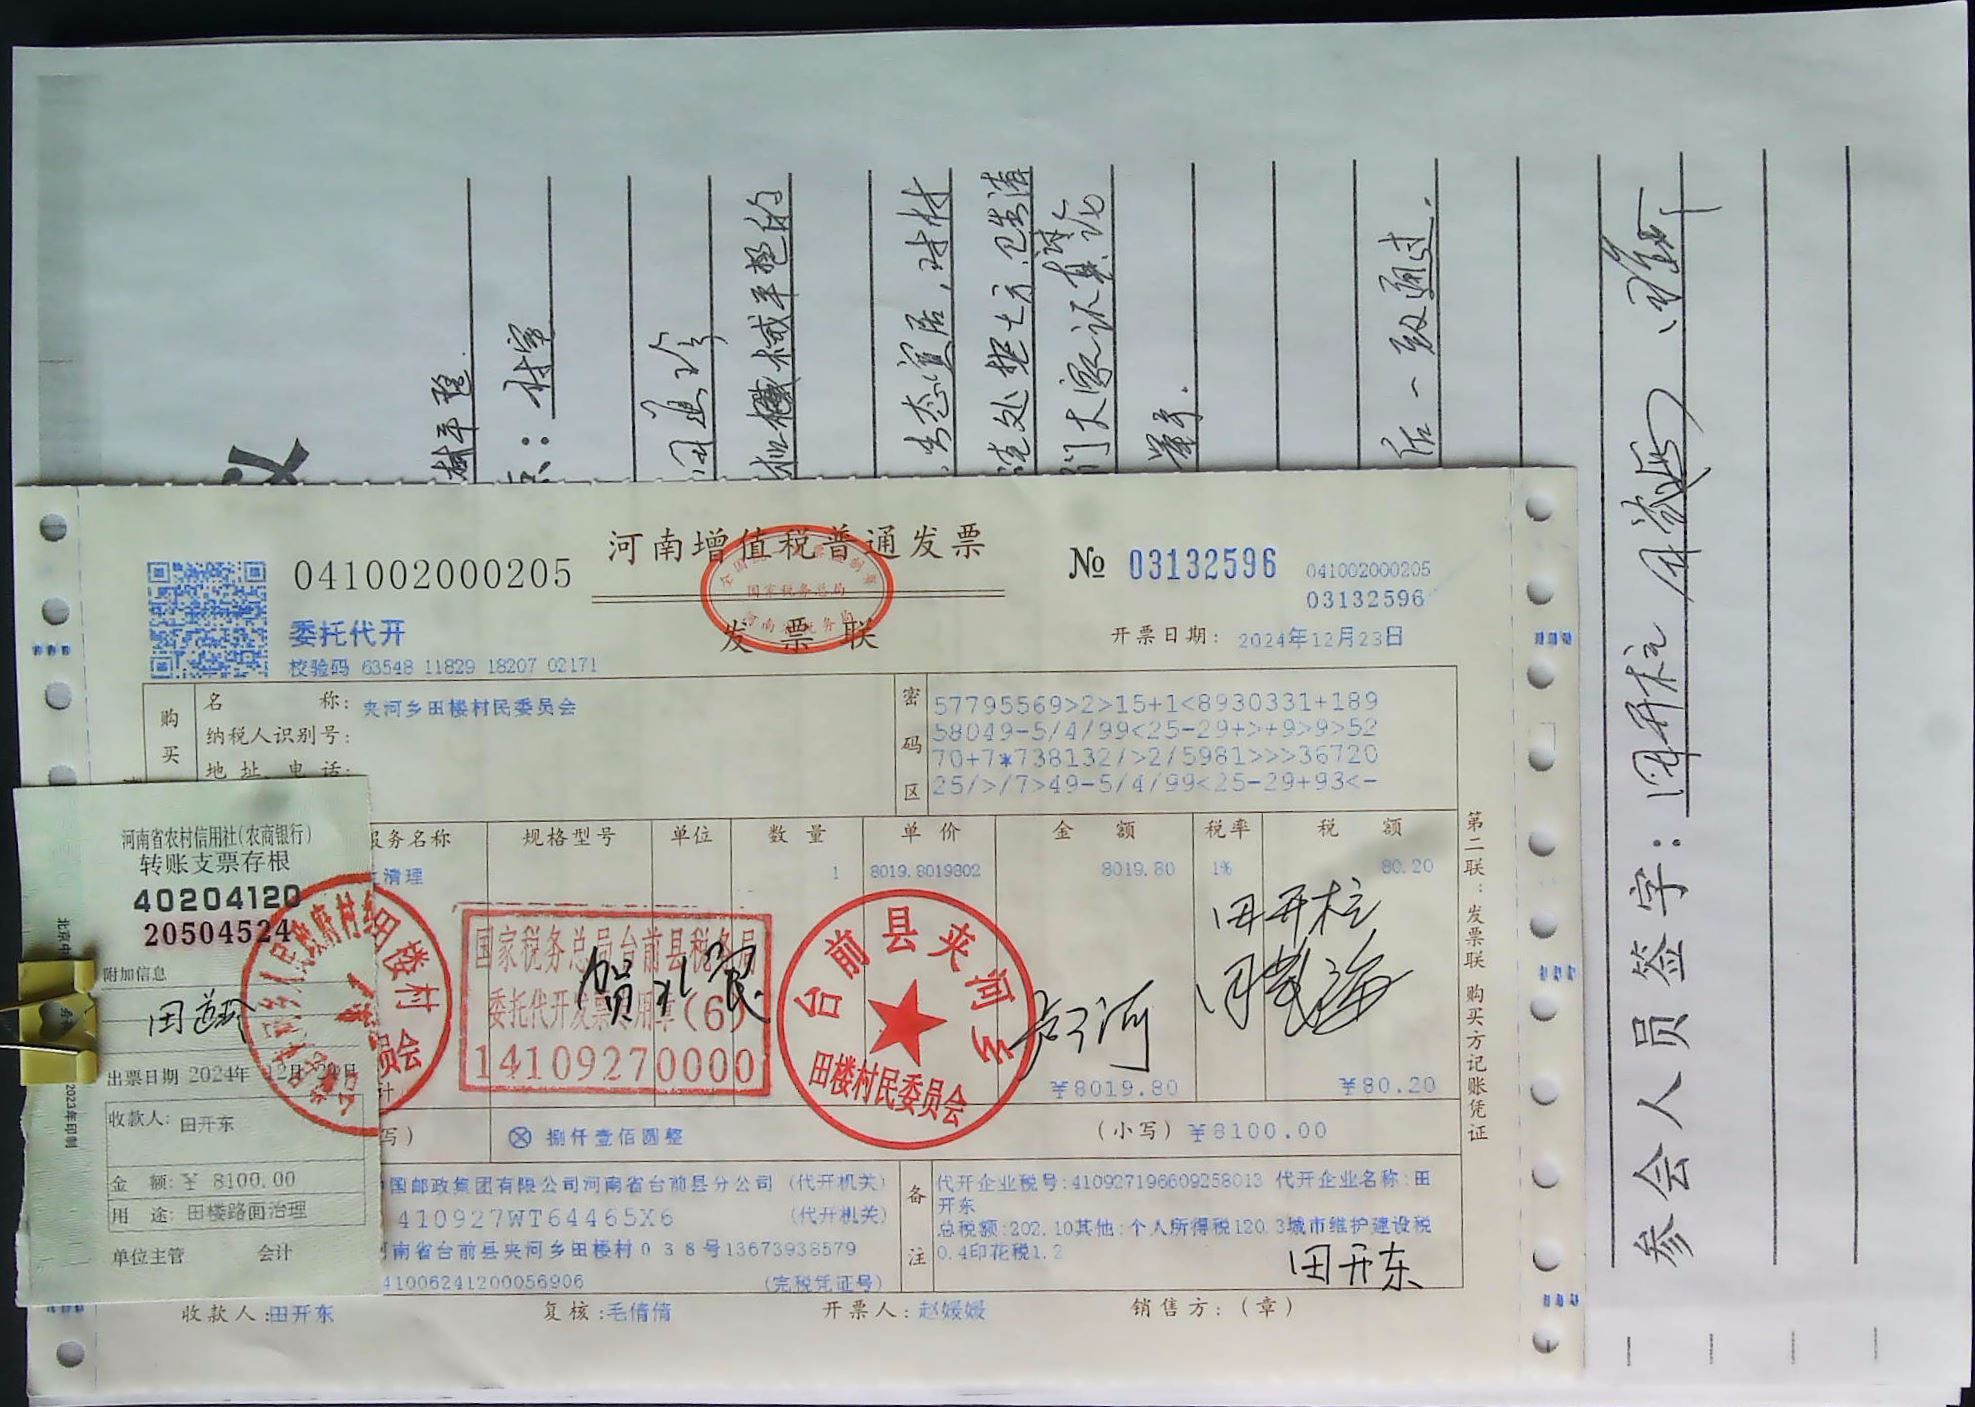 河南增值税普通发票
发票联
041002000205
委托代开
校验码 63548 11829 18207 02171
№ 03132596
041002000205
03132596
开票日期: 2024年12月23日
购买
名称: 夹河乡田楼村民委员会
纳税人识别号:
地址、电话:
密码区
57795569>2>15+1<8930331+189
58049-5/4/99<25-29+>+9>9>52
70+7*738132/>2/5981>>>36720
25/>/7>49-5/4/99<25-29+93<-
服务名称 规格型号 单位 数量 单价 金额 税率 税额
清理 1 8019.8019802 8019.80 1% 80.20
¥8019.80 ¥80.20
写) ⊗ 捌仟壹佰圆整 (小写) ¥8100.00
国邮政集团有限公司河南省台前县分公司 (代开机关)
410927WT64465X6 (代开机关)
南省台前县夹河乡田楼村038号13673938579
41006241200056906 (完税凭证号)
备注
代开企业税号:410927196609258013 代开企业名称:田
开东
总税额:202.10其他:个人所得税120.3城市维护建设税
0.4印花税1.2
田开东
收款人:田开东 复核:毛倩倩 开票人:赵媛媛 销售方:(章)
第二联:发票联 购买方记账凭证
国家税务总局
国家税务总局台前县税务局
委托代开发票专用章(6)
14109270000
台前县夹河乡
田楼村民委员会
田开柱
河南省农村信用社(农商银行)
转账支票存根
40204120
20504524
附加信息
出票日期 2024年12月
收款人: 田开东
金额: ¥ 8100.00
用途: 田楼路面治理
单位主管 会计
2023年印制
田楼村
议
平整
: 村室
机械平整的
态宜居,对村
处挖土方,卫生清
门大家认真讨论
后一致通过.
参会人员签字: 田开柱